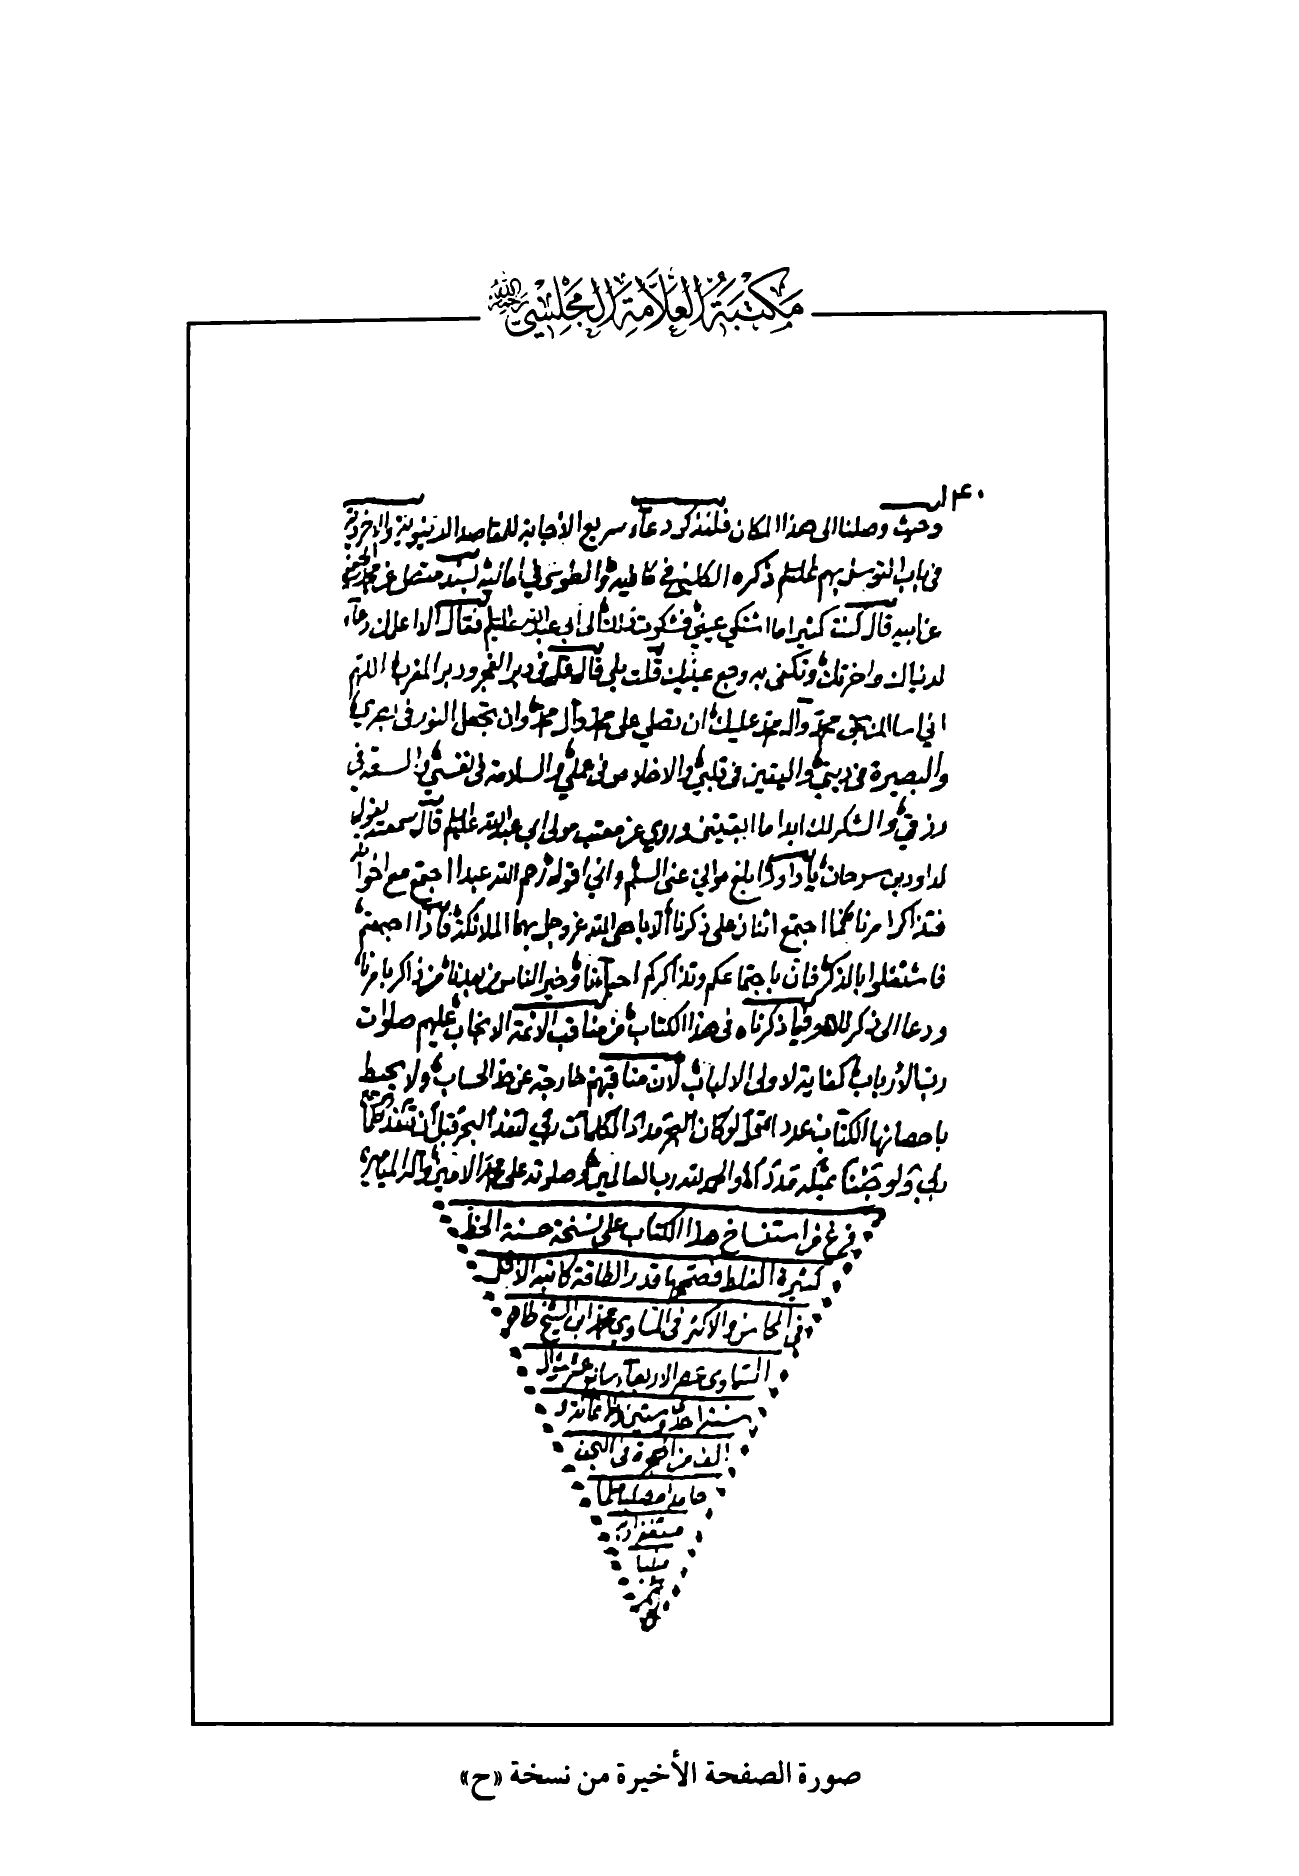 مكتبة العلامة المجلسي رحمه الله
وحيث وصلنا الى هذا المكان فلنذكر دعآء سريع الأجابة للمقاصد الدنيوية والاخروية
فى باب التوسل بهم عليهم ذكره الكلينى في كافيه والطوسى في اماليه بسند متصل عن محمد الجعفي
عن ابيه قال كنت كثيرا ما اشتكي عيني فشكوت ذلك الى ابى عبد الله عليه السلم فقال الا اعلمك دعآء
لدنياك واخرتك وتكفى به وجع عينيك قلت بلى قال تقول فى دبر الفجر ودبر المغرب اللهم
انى اسالك بحق محمد وآل محمد عليك ان تصلي على محمد وآل محمد وان تجعل النور فى بصري
والبصيرة فى دينى واليقين فى قلبى والاخلاص فى عملي والسلامة فى نفسي والسعة في
رزقي والشكر لك ابدا ما ابقيتنى وروي عن معتب مولى ابى عبد الله عليه السلم قال سمعته يقول
لداود بن سرحان يا داود ابلغ موالي عنى السلم واني اقول رحم الله عبدا اجتمع مع اخر
فتذاكرا امرنا فما اجتمع اثنان على ذكرنا الا باهى الله عز وجل بهما الملائكة فاذا اجتمعتم
فاشتغلوا بالذكر فان باجتماعكم وتذاكركم احياءنا وخير الناس من بعدنا من ذاكر بامرنا
ودعا الى ذكرنا وفيما ذكرناه فى هذا الكتاب من مناقب الائمة الانجاب عليهم صلوات
رب الأرباب كفاية لاولى الالباب لان مناقبهم خارجة عن حد الحساب ولا يحيط
باحصائها الكتاب عدد لو كان البحر مدادا لكلمات ربي لنفد البحر قبل ان تنفد كلمات
ربي ولو جئنا بمثله مددا والحمد لله رب العالمين وصلوته على محمد الامين وآله الميامين
فرغ من استنساخ هذا الكتاب على نسخة حسنة الخط
كثيرة الغلط فصححها قدر الطاقة كاتبه الأقل
فى المحاسن والاكثر فى المساوي محمد ابن الشيخ طاهر
السماوى عصر الاربعآء سابع عشر شوال
سنة احدى وستين وثلثمائة و
الف من الهجرة فى النجف
حامدا مصليا مسلما
مستغفرا
صورة الصفحة الأخيرة من نسخة «ح»